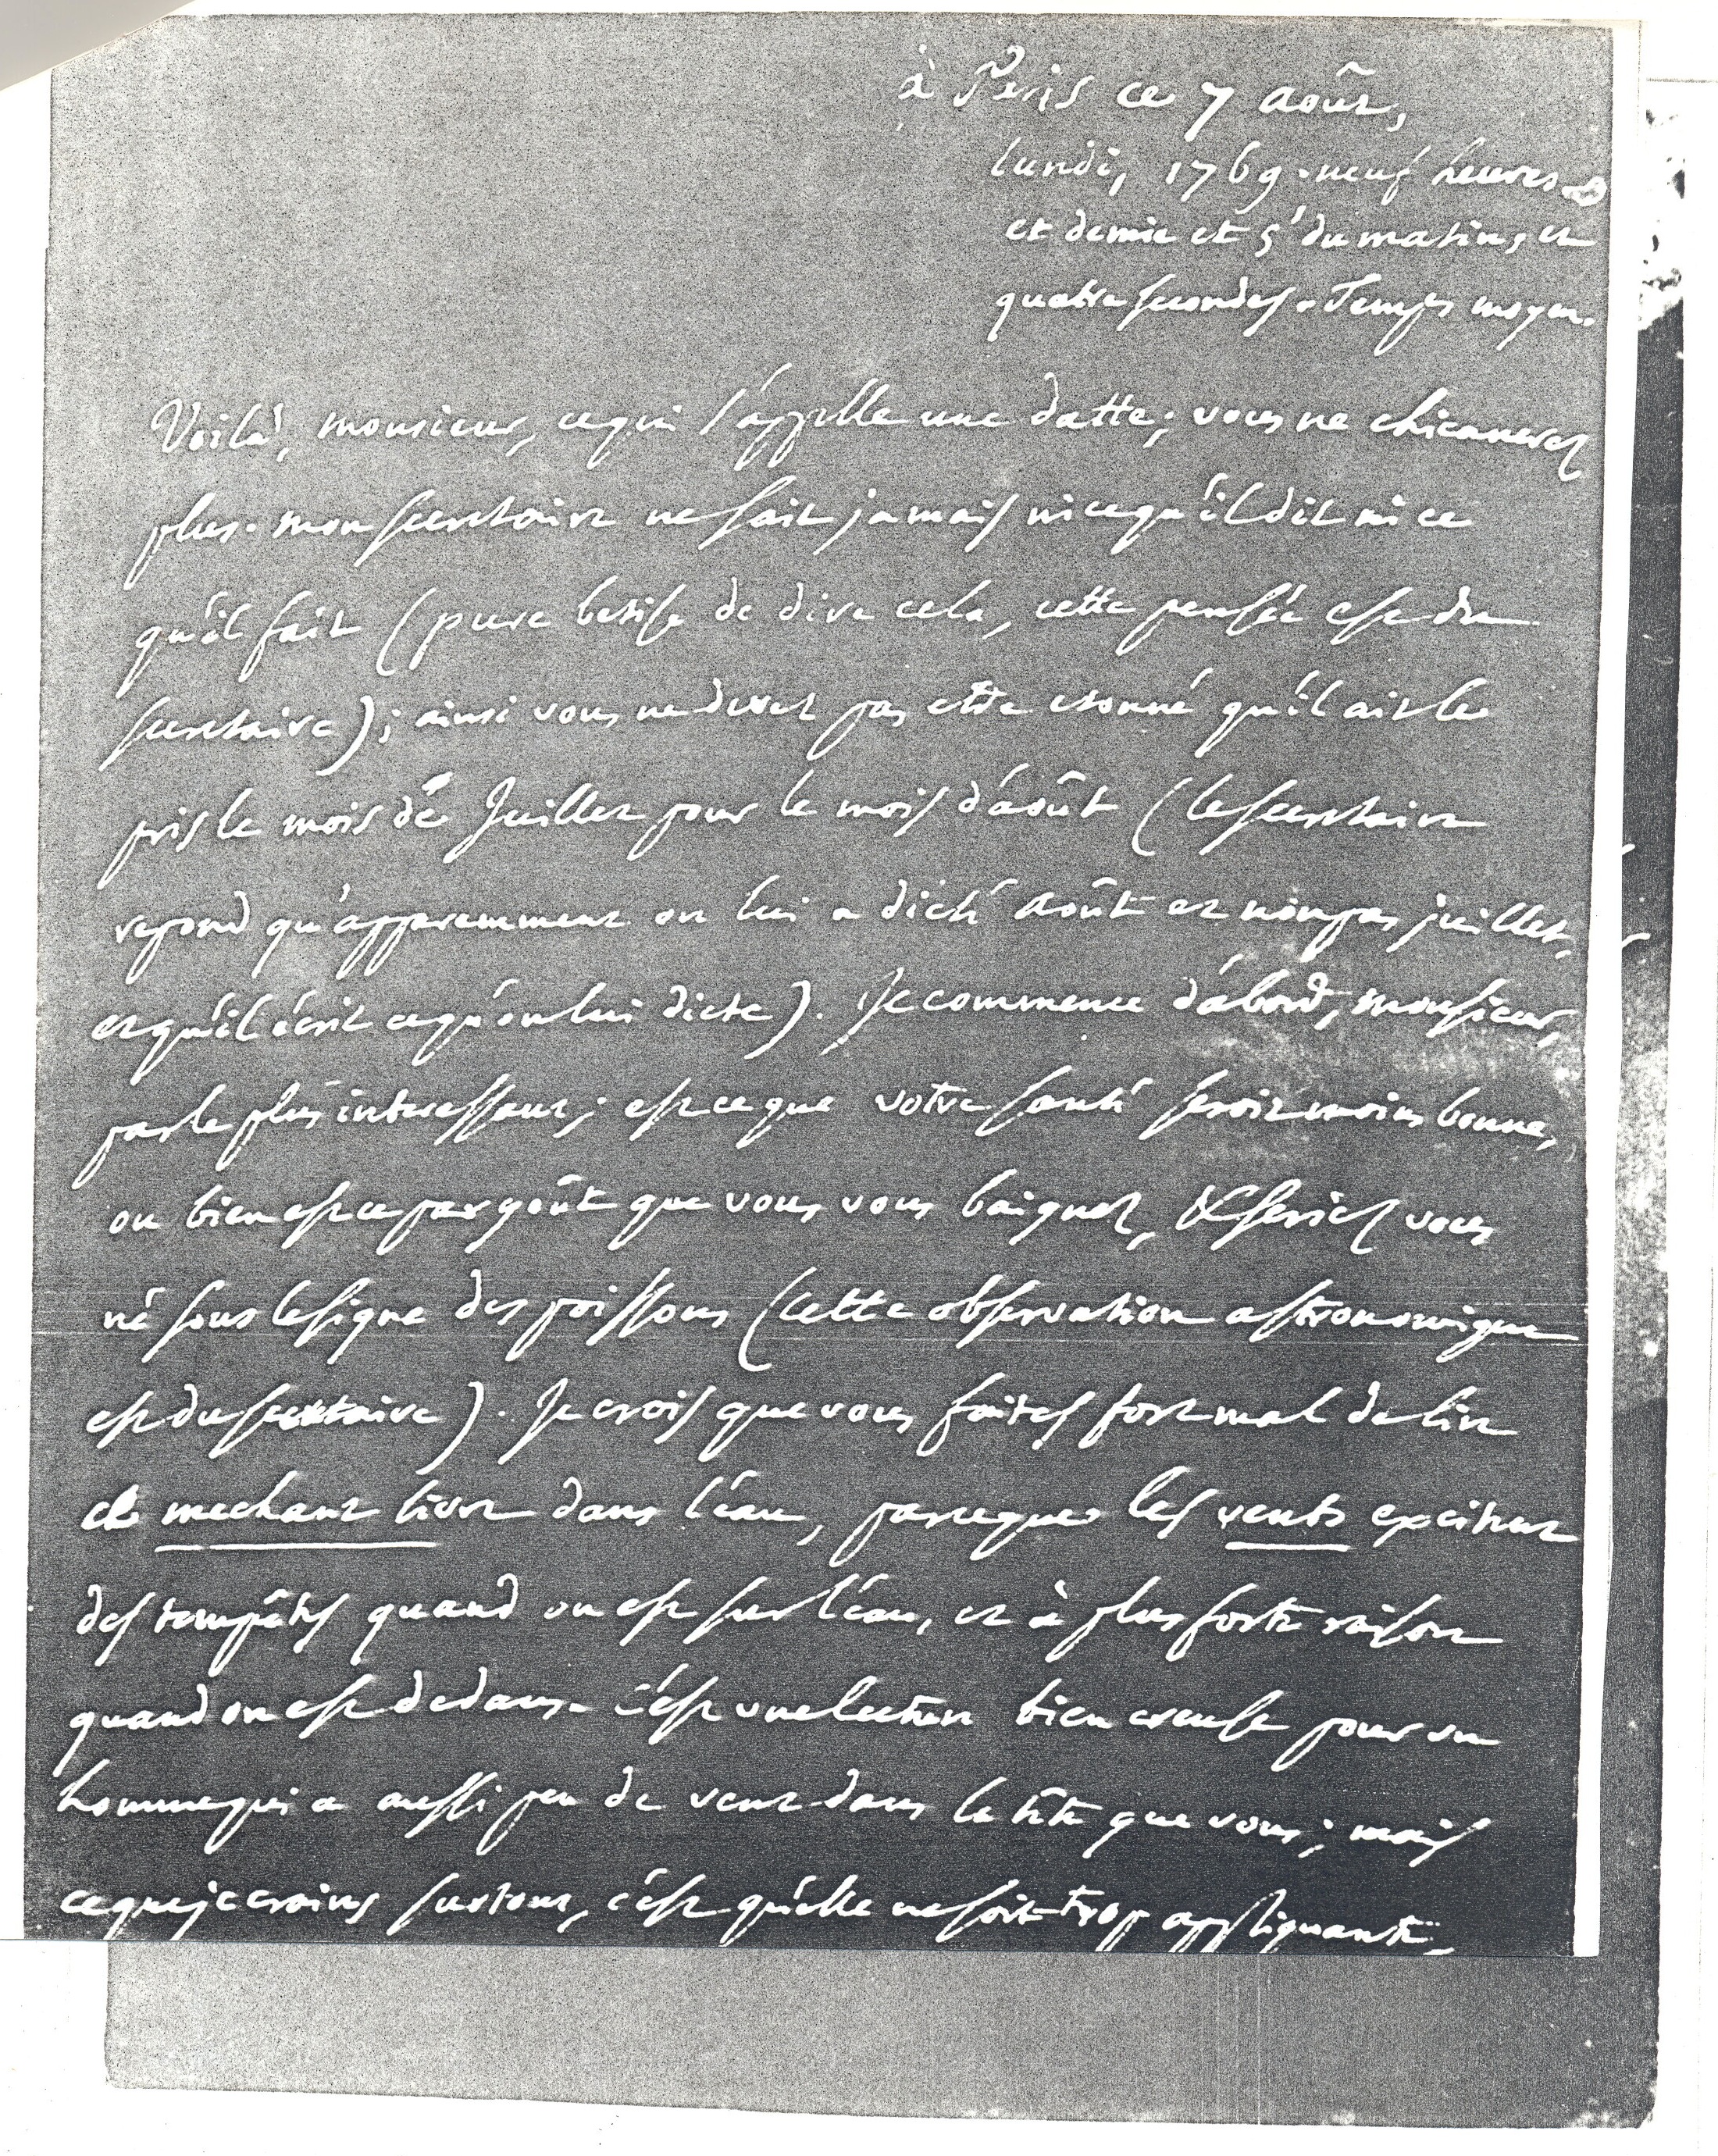 à Paris ce 7 août,
lundi, 1769. neuf heures
et demie et 5' du matin, et
quatre secondes. Temps moyen.
Voilà, monsieur, ce qui s'appelle une datte; vous ne chicanerez
plus. mon secretaire ne sait jamais ni ce qu'il dit ni ce
qu'il fait (pure betise de dire cela, cette pensée est du
secretaire); ainsi vous ne devez pas etre etonné qu'il ait le
pris le mois de Juillet pour le mois d'août (le secretaire
repond qu'apparemment on lui a dicté août et non pas juillet,
et qu'il écrit ce qu'on lui dicte). Je commence d'abord, monsieur,
par le plus interessant; est ce que votre santé seroit moins bonne,
ou bien est ce par goût que vous vous baignez, & seriez vous
né sous le signe des poissons (cette observation astronomique
est du secretaire). Je crois que vous faites fort mal de lire
ce mechant livre dans l'eau, parceque les vents excitent
des tempêtes quand on est sur l'eau, et à plus forte raison
quand on est dedans. c'est une lecture bien creuse pour un
homme qui a aussi peu de vent dans la tête que vous; mais
ce que je crains surtout, c'est qu'elle ne soit trop appliquante,